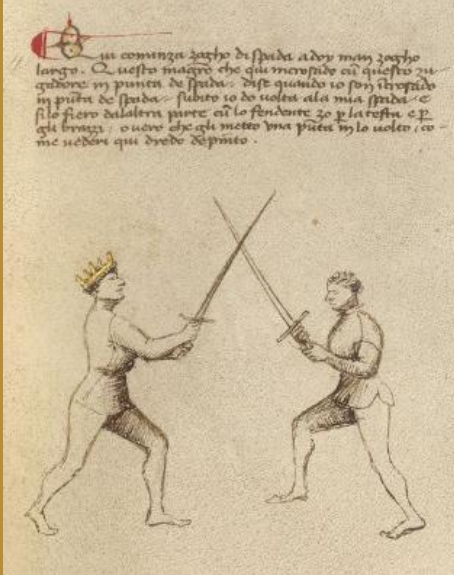 Qui cominza zogho di spada a doy man zogho
largo. Questo magro che qui incrosado cū questo zu-
gadore in punta de spada. dise quando io son īcrosado
in pūta de spada subito io do volta ala mia spada e
silo fiero dalaltra parte cū lo fendente zo p la testa e p
gli brazzi, overo che gli metto una pūta in lo volto, co-
me vederi qui dredo depinto.